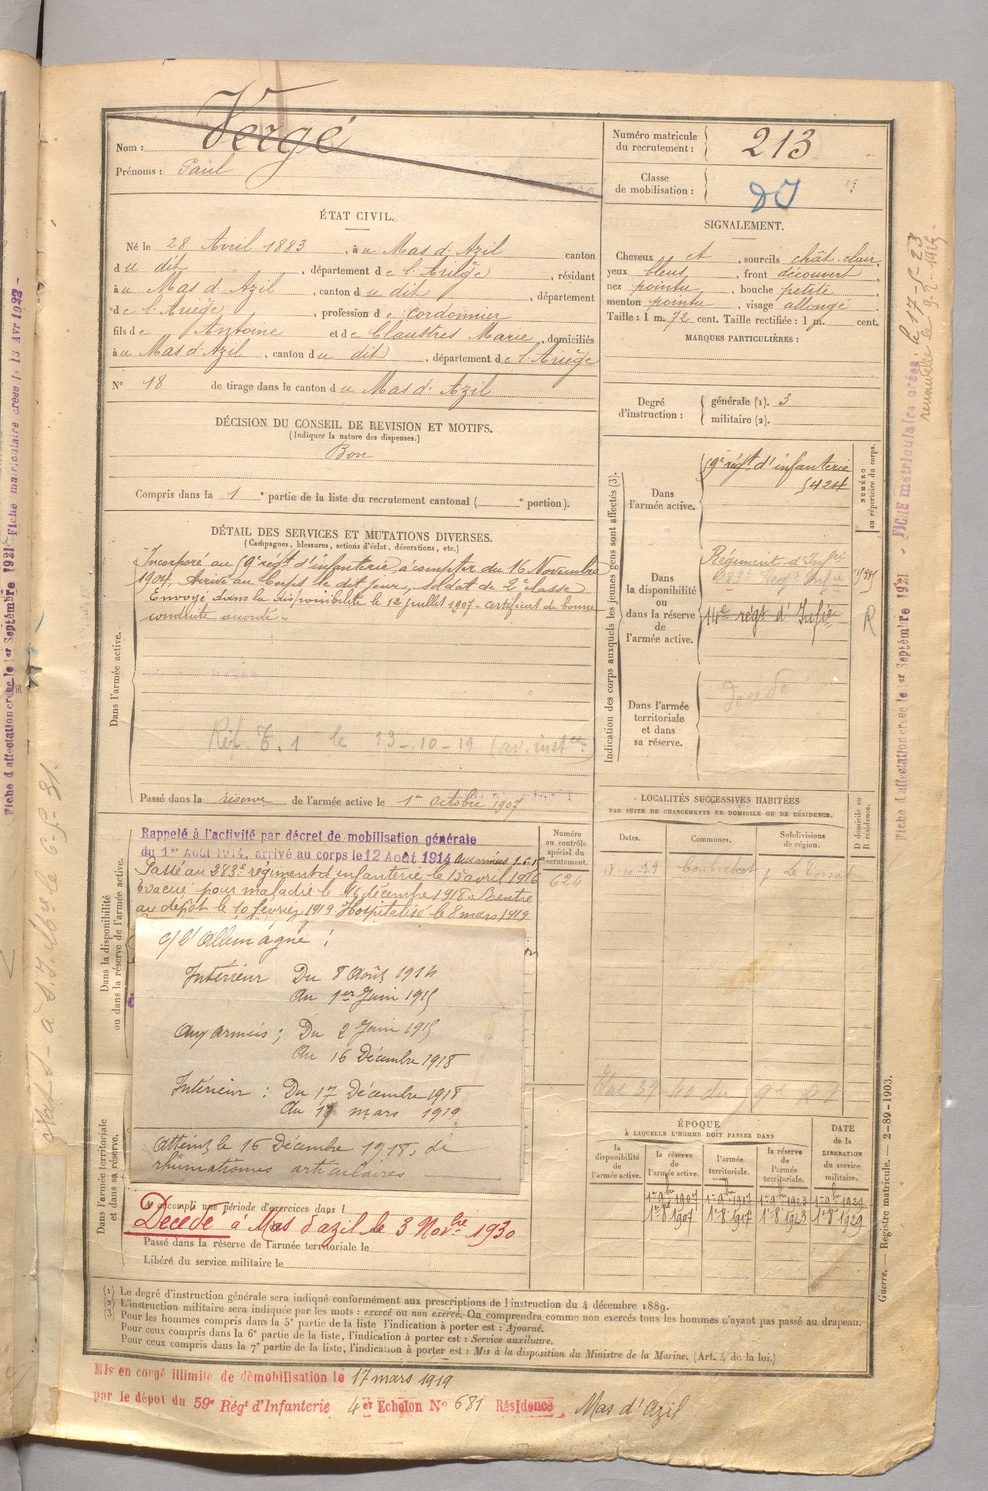 Nom : Vergé
Prénoms : Paul
ÉTAT CIVIL.
Né le 28 Avril 1883, à u Mas d'Azil canton
d u dit, département d e l'Ariège, résidant
à u Mas d'Azil, canton d u dit, département
d e l'Ariège, profession d e cordonnier
fils d e Antoine et d e Claustres Marie, domiciliés
à u Mas d'Azil, canton d u dit, département d e l'Ariège
N° 18 de tirage dans le canton d u Mas d'Azil
DÉCISION DU CONSEIL DE REVISION ET MOTIFS.
(Indiquer la nature des dispenses.)
Bon
Compris dans la 1e partie de la liste du recrutement cantonal ( e portion).
DÉTAIL DES SERVICES ET MUTATIONS DIVERSES.
(Campagnes, blessures, actions d'éclat, décorations, etc.)
Dans l'armée active.
Incorporé au 59e régt d'infanterie à compter du 16 Novembre
1904. Arrivé au Corps le dit jour, soldat de 2e classe
Envoyé dans la disponibilité le 12 juillet 1907. certificat de bonne
conduite accordé.
Réf. T. 1 le 13-10-19
Passé dans la réserve de l'armée active le 1er Octobre 1907
Dans la disponibilité
ou dans la réserve de l'armée active.
Rappelé à l'activité par décret de mobilisation générale
du 1er Août 1914, arrivé au corps le 12 Août 1914
Passé au 283e régiment d'infanterie le 15 avril 1916
Évacué pour maladie le 16 décembre 1918. Rentré
au dépôt le 10 février 1919 Hospitalisé le 8 mars 1919
Numéro
au contrôle
spécial du
recrutement.
624
c/ l'Allemagne :
Intérieur Du 8 Août 1914
Au 1er Juin 1915
Aux armées ; Du 2 Juin 1915
Au 16 Décembre 1918
Intérieur : Du 17 Décembre 1918
Au 17 mars 1919
Atteint le 16 Décembre 1918, de
rhumatismes articulaires
Dans l'armée territoriale
et dans sa réserve.
accompli une période d'exercices dans l
Décédé à Mas d'azil le 3 Novbre 1930
Passé dans la réserve de l'armée territoriale le
Libéré du service militaire le
Numéro matricule
du recrutement : 213
Classe
de mobilisation :
SIGNALEMENT.
Cheveux et, sourcils chât. clair,
yeux bleus, front découvert
nez pointu, bouche petite,
menton pointu, visage allongé
Taille : 1 m. 72 cent. Taille rectifiée : 1 m. cent.
MARQUES PARTICULIÈRES :
Degré
d'instruction :
générale (1). 3
militaire (2).
Indication des corps auxquels les jeunes gens sont affectés (3).
NUMÉRO
au répertoire du corps.
Dans
l'armée active.
59e régt d'infanterie
5424
Dans
la disponibilité
ou
dans la réserve
de
l'armée active.
Régiment d'Infie
283e Regt Infie
14e régt d'Infie
R
Dans l'armée
territoriale
et dans
sa réserve.
Décédé
LOCALITÉS SUCCESSIVES HABITÉES
PAR SUITE DE CHANGEMENTS DE DOMICILE OU DE RÉSIDENCE.
Dates. Communes. Subdivisions
de région. D domicile ou
R résidence.
ÉPOQUE
À LAQUELLE L'HOMME DOIT PASSER DANS
DATE
de la
LIBÉRATION
du service
militaire.
la
disponibilité
de
l'armée active.
la réserve
de
l'armée active.
l'armée
territoriale.
la réserve
de
l'armée
territoriale.
1er 9bre 1907 1er 9bre 1917 1er 9bre 1923 1er 9bre 1929
1er 8bre 1907 1er 8bre 1917 1er 8bre 1923 1er 8bre 1929
(1) Le degré d'instruction générale sera indiqué conformément aux prescriptions de l'instruction du 4 décembre 1889.
(2) L'instruction militaire sera indiquée par les mots : exercé ou non exercé. On comprendra comme non exercés tous les hommes n'ayant pas passé au drapeau.
(3) Pour les hommes compris dans la 5e partie de la liste l'indication à porter est : Ajourné.
Pour ceux compris dans la 6e partie de la liste, l'indication à porter est : Service auxiliaire.
Pour ceux compris dans la 7e partie de la liste, l'indication à porter est : Mis à la disposition du Ministre de la Marine. (Art. 4 de la loi.)
Mis en congé illimité de démobilisation le 17 mars 1919
par le dépôt du 59e Régt d'Infanterie 4er Echelon N° 681 Résidence Mas d'Azil
Guerre. — Registre matricule. — 2-89-1903.
Fiche d'affectation créée le 1er Septembre 1921 - Fiche matriculaire créée le 17-5-23
Fiche d'affectation créée le 1er Septembre 1921 - Fiche matriculaire créée le 13 Avr 1923 -